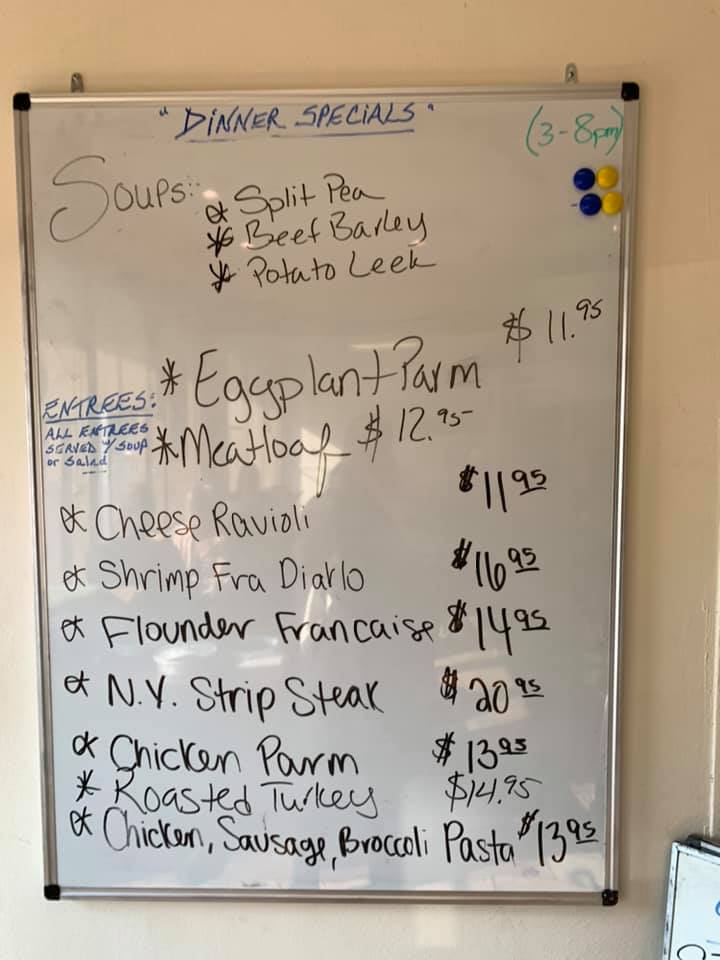 "DINNER SPECIALS"
(3-8pm)
SOUPS:
* Split Pea
* Beef Barley
* Potato Leek
* Eggplant Parm $11.95
ENTREES:
ALL ENTREES
SERVED W/ SOUP
or Salad
* Meatloaf $12.95
* Cheese Ravioli $11.95
* Shrimp Fra Diavlo $16.95
* Flounder Francaise $14.95
* N.Y. Strip Steak $20.95
* Chicken Parm $13.95
* Roasted Turkey $14.95
* Chicken, Sausage, Broccoli Pasta $13.95